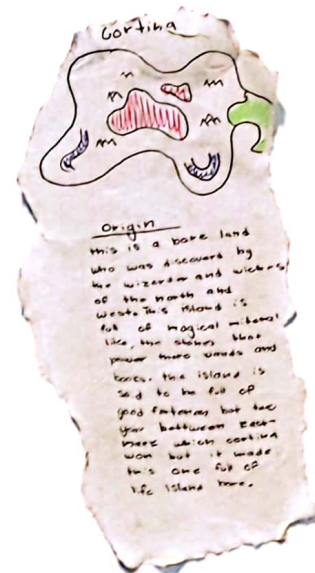 Cortina
Origin
this is a bare land
who was discoverd by
the wizerds and wiches
of the north and
west. This island is
full of magical mitenal
like, the stones that
power there wands and
books. this island is
said to be full of
good fortenes but the
war bettween
which cortina
won but it made
this one full of
life island bare.